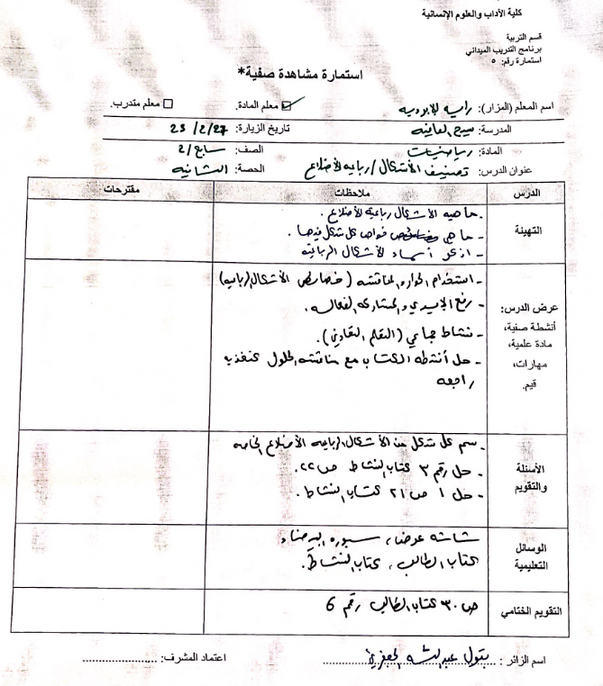 كلية الآداب والعلوم الإنسانية
قسم التربية
برنامج التدريب الميداني
استمارة رقم: ٥
استمارة مشاهدة صفية*
اسم المعلم (المزار): معلم المادة. معلم متدرب.
المدرسة: تاريخ الزيارة: 23/2/27
المادة: رياضيات الصف: سابع/2
عنوان الدرس: تصنيف الأشكال / رباعية الأضلاع الحصة: الثانية
الدرس ملاحظات مقترحات
التهيئة
- ما هية الأشكال رباعية الأضلاع.
- ما هي خواص كل شكل فيها.
- اذكر أسماء الأشكال الرباعية
عرض الدرس:
أنشطة صفية،
مادة علمية،
مهارات،
قيم.
- استخدام الحوار والمناقشة (خصائص الأشكال الرباعية)
- رفع الأيدي والمشاركة الفعالة.
- نشاط جماعي (التعلم التعاوني).
- حل أنشطة الكتاب مع مناقشة الحلول كتغذية
راجعة
الأسئلة
والتقويم
- سم كل شكل من الأشكال الرباعية الأضلاع الخاصة
- حل رقم ٣ كتاب النشاط ص ٢٢.
- حل ١ ص ٢١ كتاب النشاط.
الوسائل
التعليمية
شاشة عرض، سبورة البيضاء
كتاب الطالب، كتاب النشاط.
التقويم الختامي
ص ٣٠ كتاب الطالب رقم 6
اسم الزائر: بتول عبد الله اعتماد المشرف: